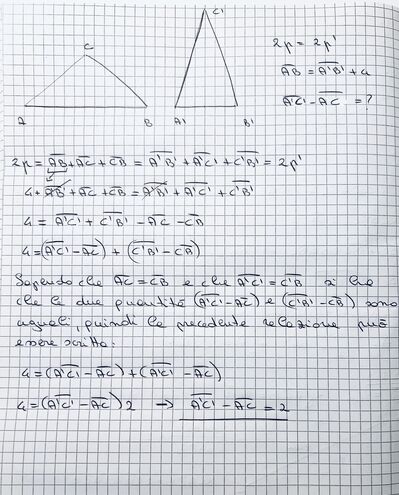 C
C'
2p = 2p'
AB = A'B' + 4
A'C' - AC = ?
A
B
A'
B'
2p = AB + AC + CB = A'B' + A'C' + C'B' = 2p'
4 + A'B' + AC + CB = A'B' + A'C' + C'B'
4 = A'C' + C'B' - AC - CB
4 = (A'C' - AC) + (C'B' - CB)
Sapendo che AC = CB e che A'C' = C'B' si ha
che le due quantità (A'C' - AC) e (C'B' - CB) sono
uguali, quindi la precedente relazione può
essere scritta:
4 = (A'C' - AC) + (A'C' - AC)
4 = (A'C' - AC) 2 → A'C' - AC = 2